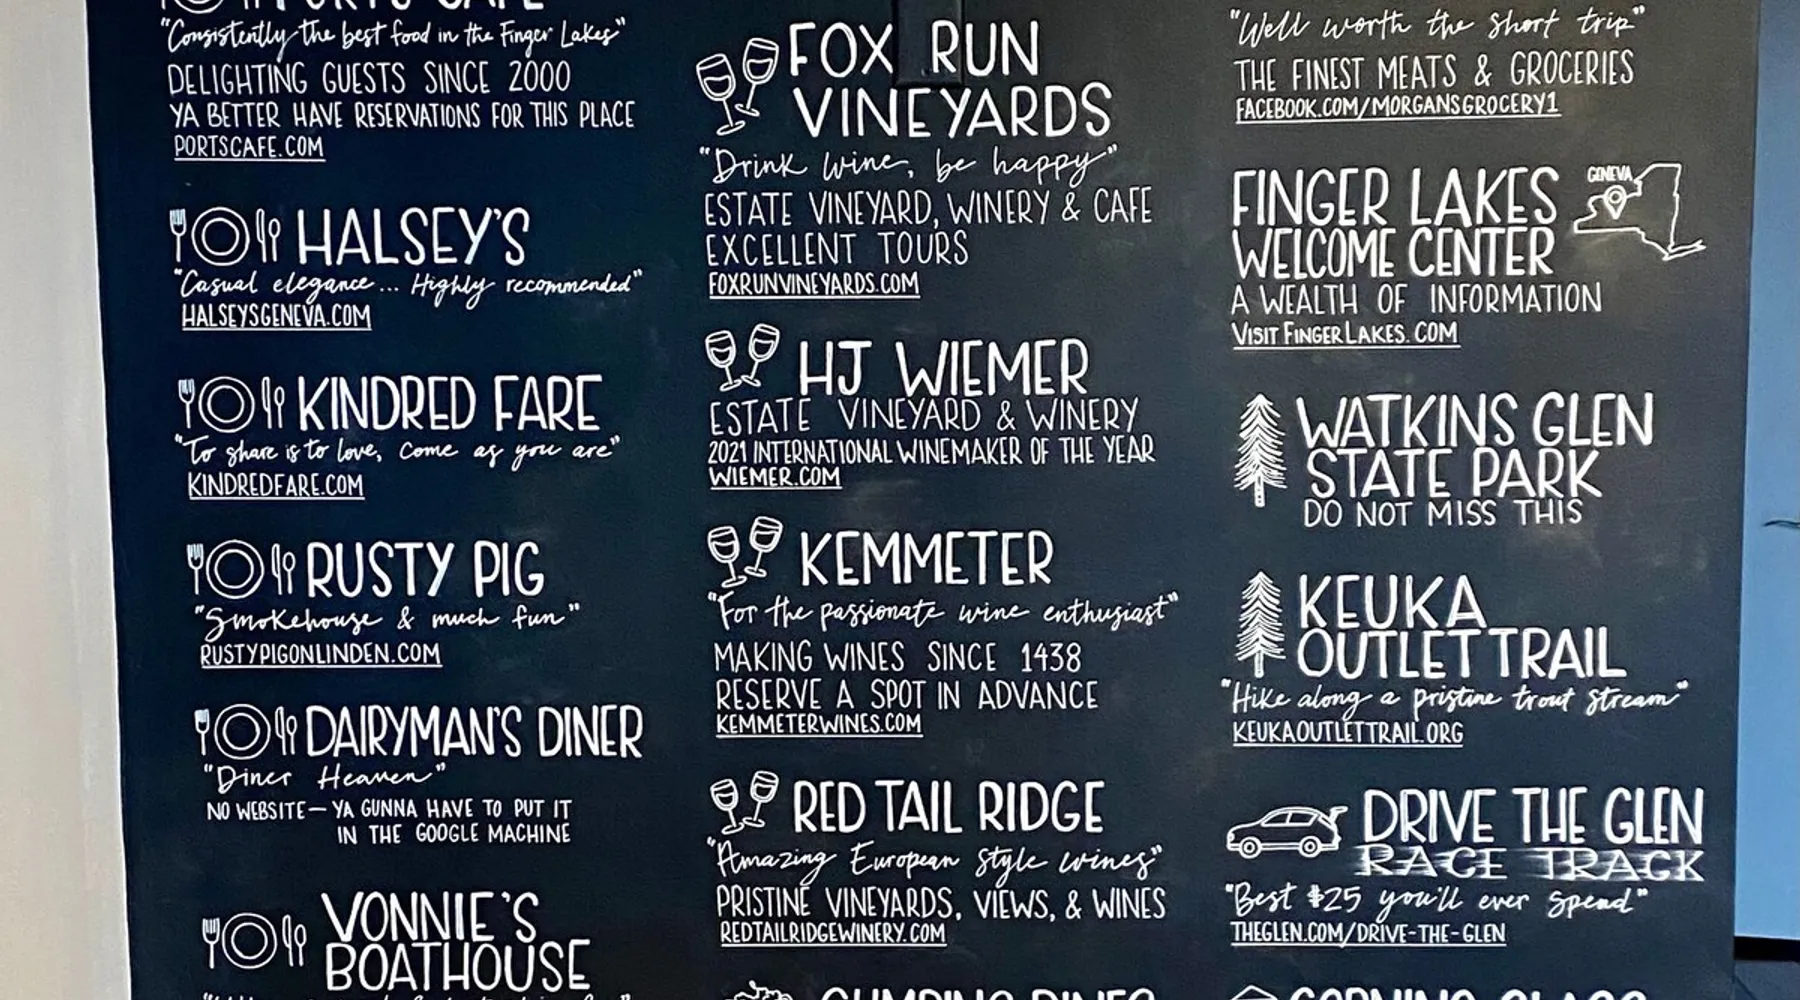 PORTS CAFE
"Consistently the best food in the Finger Lakes"
DELIGHTING GUESTS SINCE 2000
YA BETTER HAVE RESERVATIONS FOR THIS PLACE
PORTSCAFE.COM
HALSEY'S
"Casual elegance... Highly recommended"
HALSEYSGENEVA.COM
KINDRED FARE
"To share is to love, come as you are"
KINDREDFARE.COM
RUSTY PIG
"Smokehouse & much fun"
RUSTYPIGONLINDEN.COM
DAIRYMAN'S DINER
"Diner Heaven"
NO WEBSITE — YA GUNNA HAVE TO PUT IT
IN THE GOOGLE MACHINE
VONNIE'S
BOATHOUSE
FOX RUN
VINEYARDS
"Drink wine, be happy"
ESTATE VINEYARD, WINERY & CAFE
EXCELLENT TOURS
FOXRUNVINEYARDS.COM
HJ WIEMER
ESTATE VINEYARD & WINERY
2021 INTERNATIONAL WINEMAKER OF THE YEAR
WIEMER.COM
KEMMETER
"For the passionate wine enthusiast"
MAKING WINES SINCE 1438
RESERVE A SPOT IN ADVANCE
KEMMETERWINES.COM
RED TAIL RIDGE
"Amazing European style wines"
PRISTINE VINEYARDS, VIEWS, & WINES
REDTAILRIDGEWINERY.COM
"Well worth the short trip"
THE FINEST MEATS & GROCERIES
FACEBOOK.COM/MORGANSGROCERY1
FINGER LAKES
WELCOME CENTER
GENEVA
A WEALTH OF INFORMATION
VISITFINGERLAKES.COM
WATKINS GLEN
STATE PARK
DO NOT MISS THIS
KEUKA
OUTLET TRAIL
"Hike along a pristine trout stream"
KEUKAOUTLETTRAIL.ORG
DRIVE THE GLEN
RACE TRACK
"Best $25 you'll ever spend"
THEGLEN.COM/DRIVE-THE-GLEN
CORNING GLASS